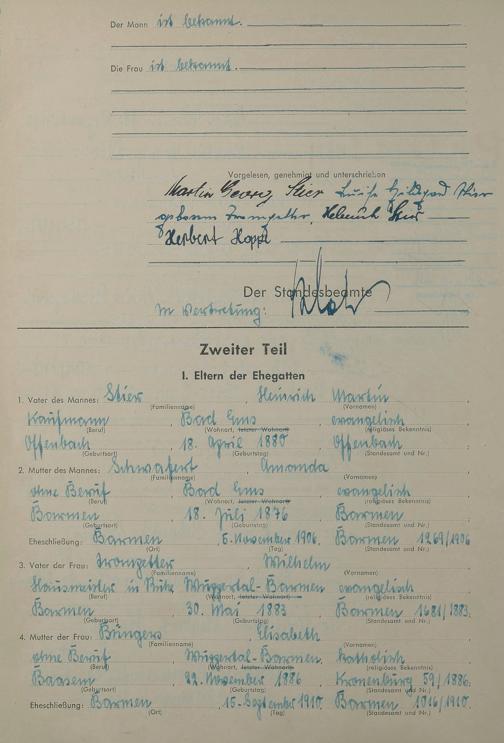 Der Mann ist bekannt.
Die Frau ist bekannt.
Vorgelesen, genehmigt und unterschrieben
Martin Georg Stier Luise Hildegard Stier
geborene Tromgetter, Helmut Stier
Herbert Hoppe
Der Standesbeamte
In Vertretung:
Zweiter Teil
I. Eltern der Ehegatten
1. Vater des Mannes: Stier, Heinrich Martin
(Familienname) (Vornamen)
Kaufmann, Bad Ems, evangelisch
(Beruf) (Wohnort, letzter Wohnort) (religiöses Bekenntnis)
Offenbach, 18. April 1880 Offenbach
(Geburtsort) (Geburtstag) (Standesamt und Nr.)
2. Mutter des Mannes: Schwafert, Amanda
(Familienname) (Vornamen)
ohne Beruf, Bad Ems, evangelisch
(Beruf) (Wohnort, letzter Wohnort) (religiöses Bekenntnis)
Barmen, 18. Juli 1876, Barmen
(Geburtsort) (Geburtstag) (Standesamt und Nr.)
Eheschließung: Barmen, 5. November 1906, Barmen 1269/1906
(Ort) (Tag) (Standesamt und Nr.)
3. Vater der Frau: Tromgetter, Wilhelm
(Familienname) (Vornamen)
Hausmeister in Ruhe, Wuppertal-Barmen, evangelisch
(Beruf) (Wohnort, letzter Wohnort) (religiöses Bekenntnis)
Barmen, 30. Mai 1883, Barmen 1681/1883.
(Geburtsort) (Geburtstag) (Standesamt und Nr.)
4. Mutter der Frau: Büngers, Elisabeth
(Familienname) (Vornamen)
ohne Beruf, Wuppertal-Barmen, katholisch
(Beruf) (Wohnort, letzter Wohnort) (religiöses Bekenntnis)
Baasem, 29. November 1886, Kronenburg 59/1886.
(Geburtsort) (Geburtstag) (Standesamt und Nr.)
Eheschließung: Barmen, 15. September 1910, Barmen 1016/1910.
(Ort) (Tag) (Standesamt und Nr.)